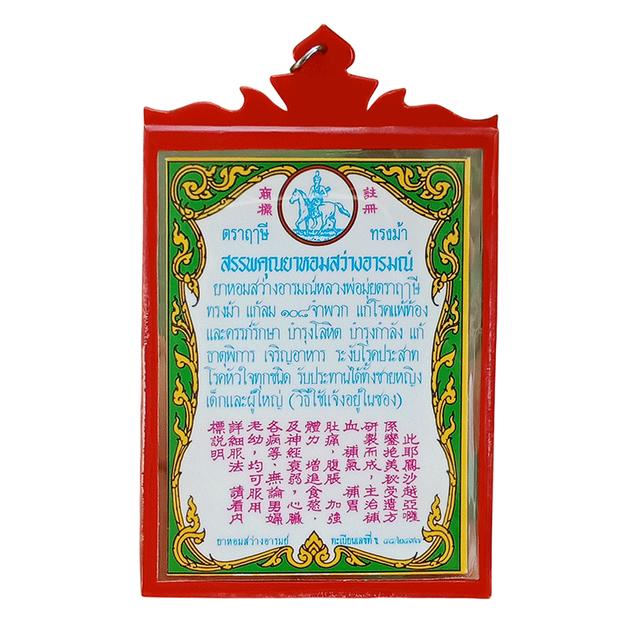 商標 註冊
ตราฤาษี ทรงม้า
สรรพคุณยาหอมสว่างอารมณ์
ยาหอมสว่างอารมณ์หลวงพ่อมุ่ยตราฤาษี
ทรงม้า แก้ลม ๑๐๘ จำพวก แก้โรคแพ้ท้อง
และครรภ์รักษา บำรุงโลหิต บำรุงกำลัง แก้
ธาตุพิการ เจริญอาหาร ระงับโรคประสาท
โรคหัวใจทุกชนิด รับประทานได้ทั้งชายหญิง
เด็กและผู้ใหญ่ (วิธีใช้แจ้งอยู่ในซอง)
此耶鳳沙越亞囉
係鑾抱美秘受遺方
研製而成,主治補
血,補氣,補胃
肚痛,腹脹,加強
體力,增進食慾.
及神經衰弱,心臟
各病等,無論男婦
老幼,均可服用
詳細服法,請看內
標說明
ยาหอมสว่างอารมย์ ทะเบียนเลขที่